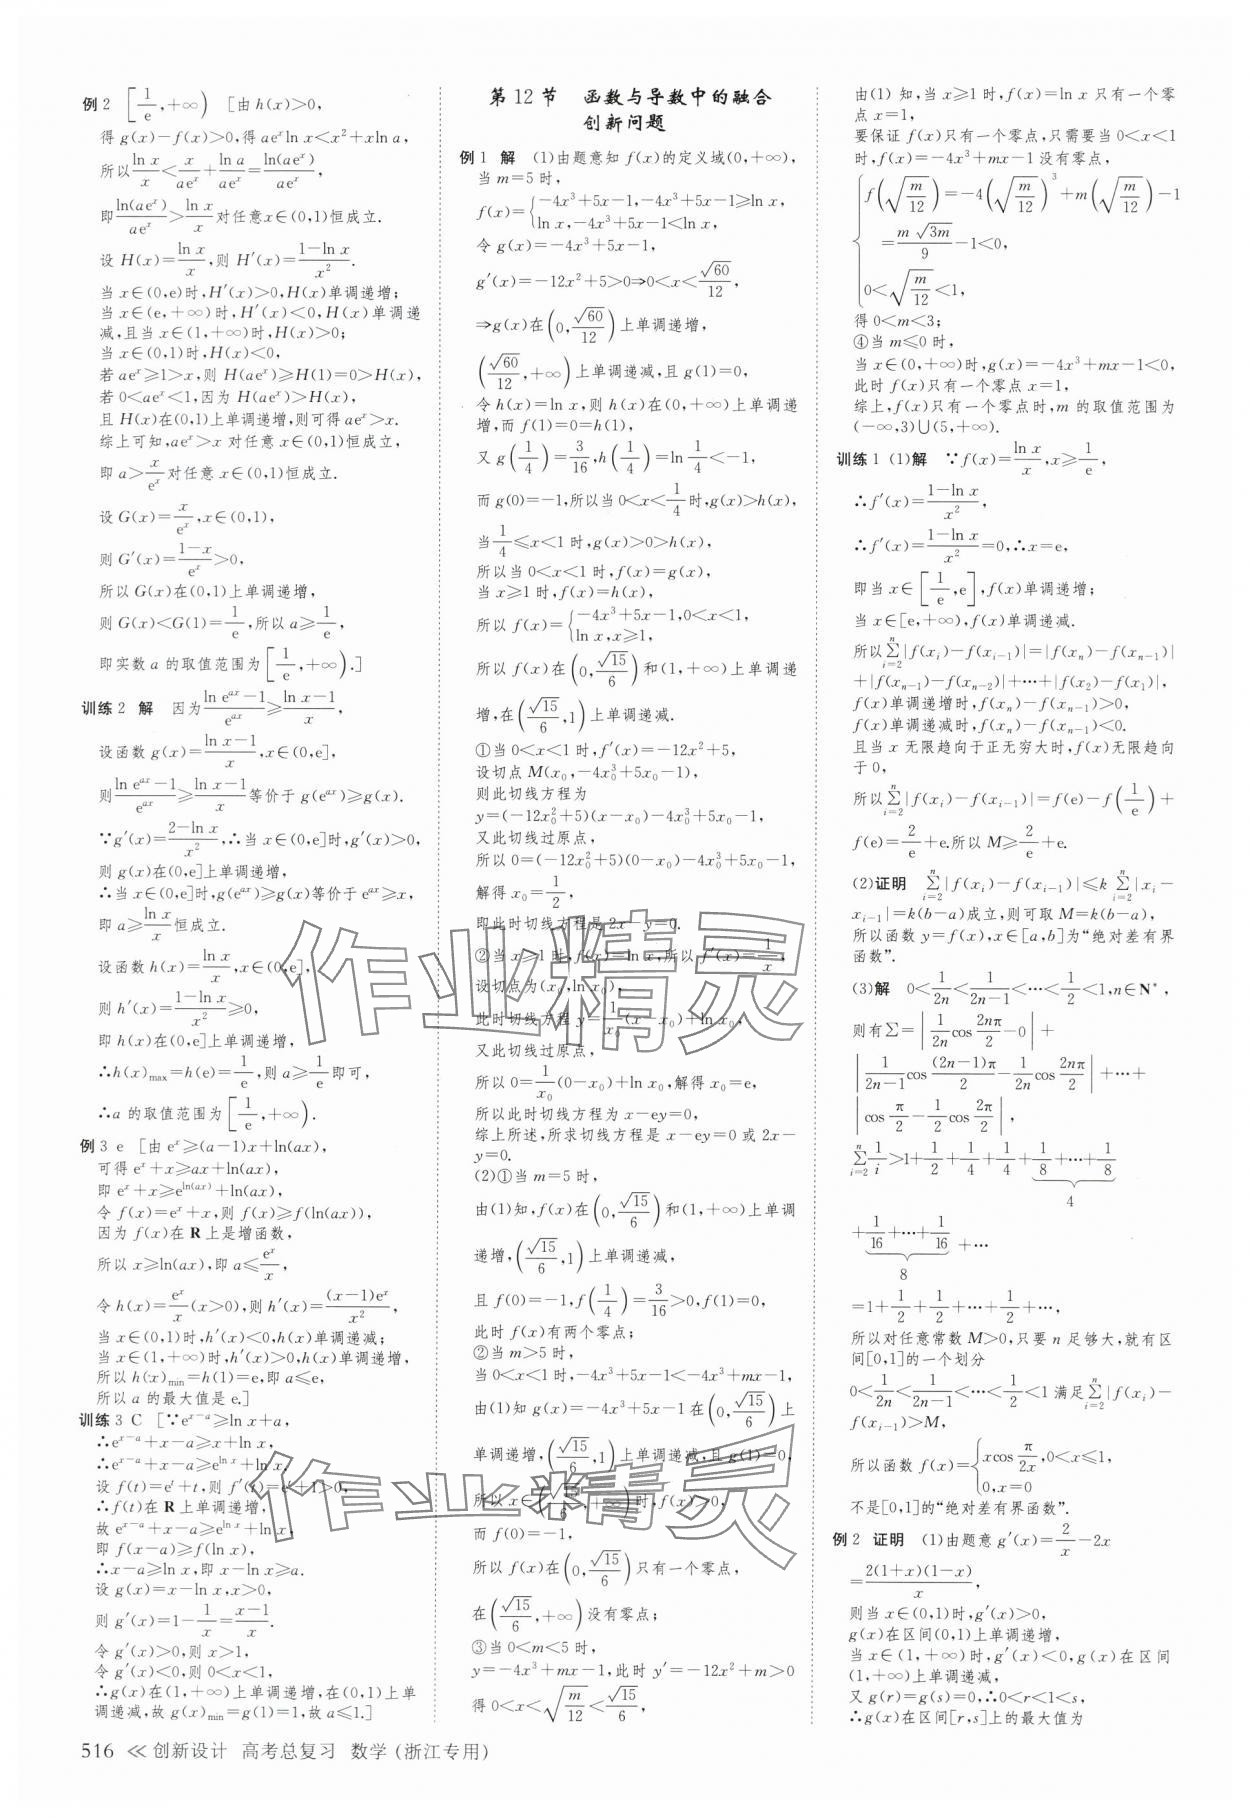 例2 [1/e,+∞) [由 h(x)>0,
得 g(x)-f(x)>0,得 ae^x ln x<x²+xln a,
所以 ln x/x < x/ae^x + ln a/ae^x = ln(ae^x)/ae^x,
即 ln(ae^x)/ae^x > ln x/x 对任意x∈(0,1)恒成立.
设 H(x)=ln x/x,则 H′(x)=(1-ln x)/x².
当 x∈(0,e)时,H′(x)>0,H(x)单调递增;
当 x∈(e,+∞)时,H′(x)<0,H(x)单调递
减,且当 x∈(1,+∞)时,H(x)>0;
当 x∈(0,1)时,H(x)<0,
若 ae^x≥1>x,则 H(ae^x)≥H(1)=0>H(x),
若 0<ae^x<1,因为 H(ae^x)>H(x),
且 H(x)在(0,1)上单调递增,则可得 ae^x>x.
综上可知,ae^x>x 对任意 x∈(0,1)恒成立,
即 a>x/e^x 对任意 x∈(0,1)恒成立.
设 G(x)=x/e^x,x∈(0,1),
则 G′(x)=(1-x)/e^x>0,
所以 G(x)在(0,1)上单调递增,
则 G(x)<G(1)=1/e,所以 a≥1/e,
即实数 a 的取值范围为[1/e,+∞).]
训练2 解 因为 (ln e^ax-1)/e^ax ≥ (ln x-1)/x,
设函数 g(x)=(ln x-1)/x,x∈(0,e],
则 (ln e^ax-1)/e^ax ≥ (ln x-1)/x 等价于 g(e^ax)≥g(x).
∵g′(x)=(2-ln x)/x²,∴当 x∈(0,e]时,g′(x)>0,
则 g(x)在(0,e]上单调递增,
∴当 x∈(0,e]时,g(e^ax)≥g(x)等价于 e^ax≥x,
即 a≥ln x/x 恒成立.
设函数 h(x)=ln x/x,x∈(0,e],
则 h′(x)=(1-ln x)/x²≥0,
即 h(x)在(0,e]上单调递增,
∴h(x)max=h(e)=1/e,则 a≥1/e即可,
∴a 的取值范围为[1/e,+∞).
例3 e [由 e^x≥(a-1)x+ln(ax),
可得 e^x+x≥ax+ln(ax),
即 e^x+x≥e^ln(ax)+ln(ax),
令 f(x)=e^x+x,则 f(x)≥f(ln(ax)),
因为 f(x)在 R 上是增函数,
所以 x≥ln(ax),即 a≤e^x/x,
令 h(x)=e^x/x(x>0),则 h′(x)=(x-1)e^x/x²,
当 x∈(0,1)时,h′(x)<0,h(x)单调递减;
当 x∈(1,+∞)时,h′(x)>0,h(x)单调递增,
所以 h(x)min=h(1)=e,即 a≤e,
所以 a 的最大值是 e.]
训练3 C [∵e^(x-a)≥ln x+a,
∴e^(x-a)+x-a≥x+ln x,
∴e^(x-a)+x-a≥e^(ln x)+ln x,
设 f(t)=e^t+t,则 f′(t)=e^t+1>0,
∴f(t)在 R 上单调递增,
故 e^(x-a)+x-a≥e^(ln x)+ln x,
即 f(x-a)≥f(ln x),
∴x-a≥ln x,即 x-ln x≥a.
设 g(x)=x-ln x,x>0,
则 g′(x)=1-1/x=(x-1)/x.
令 g′(x)>0,则 x>1,
令 g′(x)<0,则 0<x<1,
∴g(x)在(1,+∞)上单调递增,在(0,1)上单
调递减,故 g(x)min=g(1)=1,故 a≤1.]
第12节 函数与导数中的融合
创新问题
例1 解 (1)由题意知 f(x)的定义域(0,+∞),
当 m=5 时,
f(x)={-4x³+5x-1,-4x³+5x-1≥ln x,
ln x,-4x³+5x-1<ln x,
令 g(x)=-4x³+5x-1,
g′(x)=-12x²+5>0⇒0<x<√60/12,
⇒g(x)在(0,√60/12)上单调递增,
(√60/12,+∞)上单调递减,且 g(1)=0,
令 h(x)=ln x,则 h(x)在(0,+∞)上单调递
增,而 f(1)=0=h(1),
又 g(1/4)=3/16,h(1/4)=ln 1/4<-1,
而 g(0)=-1,所以当 0<x<1/4时,g(x)>h(x),
当1/4≤x<1时,g(x)>0>h(x),
所以当 0<x<1 时,f(x)=g(x),
当 x≥1时,f(x)=h(x),
所以 f(x)={-4x³+5x-1,0<x<1,
ln x,x≥1,
所以 f(x)在(0,√15/6)和(1,+∞)上单调递
增,在(√15/6,1)上单调递减.
①当 0<x<1 时,f′(x)=-12x²+5,
设切点 M(x₀,-4x₀³+5x₀-1),
则此切线方程为
y=(-12x₀²+5)(x-x₀)-4x₀³+5x₀-1,
又此切线过原点,
所以 0=(-12x₀²+5)(0-x₀)-4x₀³+5x₀-1,
解得 x₀=1/2,
即此时切线方程是 2x-y=0.
②当 x≥1时,f(x)=ln x,所以 f′(x)=1/x,
设切点为(x₀,ln x₀),
此时切线方程 y=1/x₀(x-x₀)+ln x₀,
又此切线过原点,
所以 0=1/x₀(0-x₀)+ln x₀,解得 x₀=e,
所以此时切线方程为 x-ey=0,
综上所述,所求切线方程为 x-ey=0 或 2x-
y=0.
(2)①当 m=5 时,
由(1)知,f(x)在(0,√15/6)和(1,+∞)上单调
递增,(√15/6,1)上单调递减,
且 f(0)=-1,f(1/4)=3/16>0,f(1)=0,
此时 f(x)有两个零点;
②当 m>5 时,
当 0<x<1 时,-4x³+5x-1<-4x³+mx-1,
由(1)知 g(x)=-4x³+5x-1 在(0,√15/6)上
单调递增,(√15/6,1)上单调递减,且 g(1)=0,
所以 x∈(√15/6,+∞)时,f(x)>0,
而 f(0)=-1,
所以 f(x)在(0,√15/6)只有一个零点,
在(√15/6,+∞)没有零点;
③当 0<m<5 时,
y=-4x³+mx-1,此时 y′=-12x²+m>0
得 0<x<√(m/12)<√15/6,
由(1) 知,当 x≥1 时,f(x)=ln x 只有一个零
点 x=1,
要保证 f(x)只有一个零点,只需要当 0<x<1
时,f(x)=-4x³+mx-1 没有零点,
{f(√(m/12))=-4(√(m/12))³+m(√(m/12))-1
=m√3m/9-1<0,
0<√(m/12)<1,
得 0<m<3;
④当 m≤0 时,
当 x∈(0,+∞)时,g(x)=-4x³+mx-1<0,
此时 f(x)只有一个零点 x=1,
综上,f(x)只有一个零点时,m 的取值范围为
(-∞,3)∪(5,+∞).
训练1 (1)解 ∵f(x)=ln x/x,x≥1/e,
∴f′(x)=(1-ln x)/x²,
∴f′(x)=(1-ln x)/x²=0,∴x=e,
即当 x∈[1/e,e],f(x)单调递增;
当 x∈[e,+∞),f(x)单调递减.
所以 ∑(i=2→n)|f(xᵢ)-f(xᵢ₋₁)|=|f(xₙ)-f(xₙ₋₁)|
+|f(xₙ₋₁)-f(xₙ₋₂)|+⋯+|f(x₂)-f(x₁)|,
f(x)单调递增时,f(xₙ)-f(xₙ₋₁)>0,
f(x)单调递减时,f(xₙ)-f(xₙ₋₁)<0.
且当 x 无限趋向于正无穷大时,f(x)无限趋向
于 0,
所以 ∑(i=2→n)|f(xᵢ)-f(xᵢ₋₁)|=f(e)-f(1/e)+
f(e)=2/e+e.所以 M≥2/e+e.
(2)证明 ∑(i=2→n)|f(xᵢ)-f(xᵢ₋₁)|≤k∑(i=2→n)|xᵢ-
xᵢ₋₁|=k(b-a)成立,则可取 M=k(b-a),
所以函数 y=f(x),x∈[a,b]为“绝对差有界
函数”.
(3)解 0<1/2n<1/(2n-1)<⋯<1/2<1,n∈N*,
则有∑=|1/2n cos 2nπ/2-0|+
|1/(2n-1) cos (2n-1)π/2-1/2n cos 2nπ/2|+⋯+
|cos π/2-1/2 cos 2π/2|,
∑(i=2→n) 1/i>1+1/2+1/4+1/4+1/8+⋯+1/8
4
+1/16+⋯+1/16+⋯
8
=1+1/2+1/2+⋯+1/2+⋯,
所以对任意常数 M>0,只要 n 足够大,就有区
间[0,1]的一个划分
0<1/2n<1/(2n-1)<⋯<1/2<1 满足∑(i=2→n)|f(xᵢ)-
f(xᵢ₋₁)>M,
所以函数 f(x)={xcos π/2x,0<x≤1,
0,x=0
不是[0,1]的“绝对差有界函数”.
例2 证明 (1)由题意 g′(x)=2/x-2x
=2(1+x)(1-x)/x,
则当 x∈(0,1)时,g′(x)>0,
g(x)在区间(0,1)上单调递增,
当 x∈(1,+∞)时,g′(x)<0,g(x)在区间
(1,+∞)上单调递减,
又 g(r)=g(s)=0,∴0<r<1<s,
∴g(x)在区间[r,s]上的最大值为
516 ≪ 创新设计 高考总复习 数学(浙江专用)
作业精灵
作业精灵